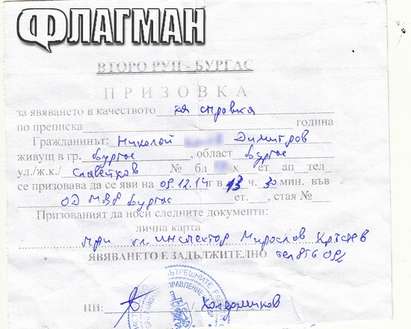 ФЛАГМАН
ВТОРО РУП - БУРГАС
ПРИЗОВКА
за явяването в качеството за справка
по преписка година
Гражданинът: Николай Димитров
живущ в гр. Бургас, област Бургас
ул./ж.к./ Славейков № бл ет ап тел
се призовава да се яви на 09.12.14 в 13 ч. 30 мин. във
ОД МВР Бургас ет. , стая №
Призованият да носи следните документи:
лична карта
При гл. инспектор Мирослав
ЯВЯВАНЕТО Е ЗАДЪЛЖИТЕЛНО тел 856